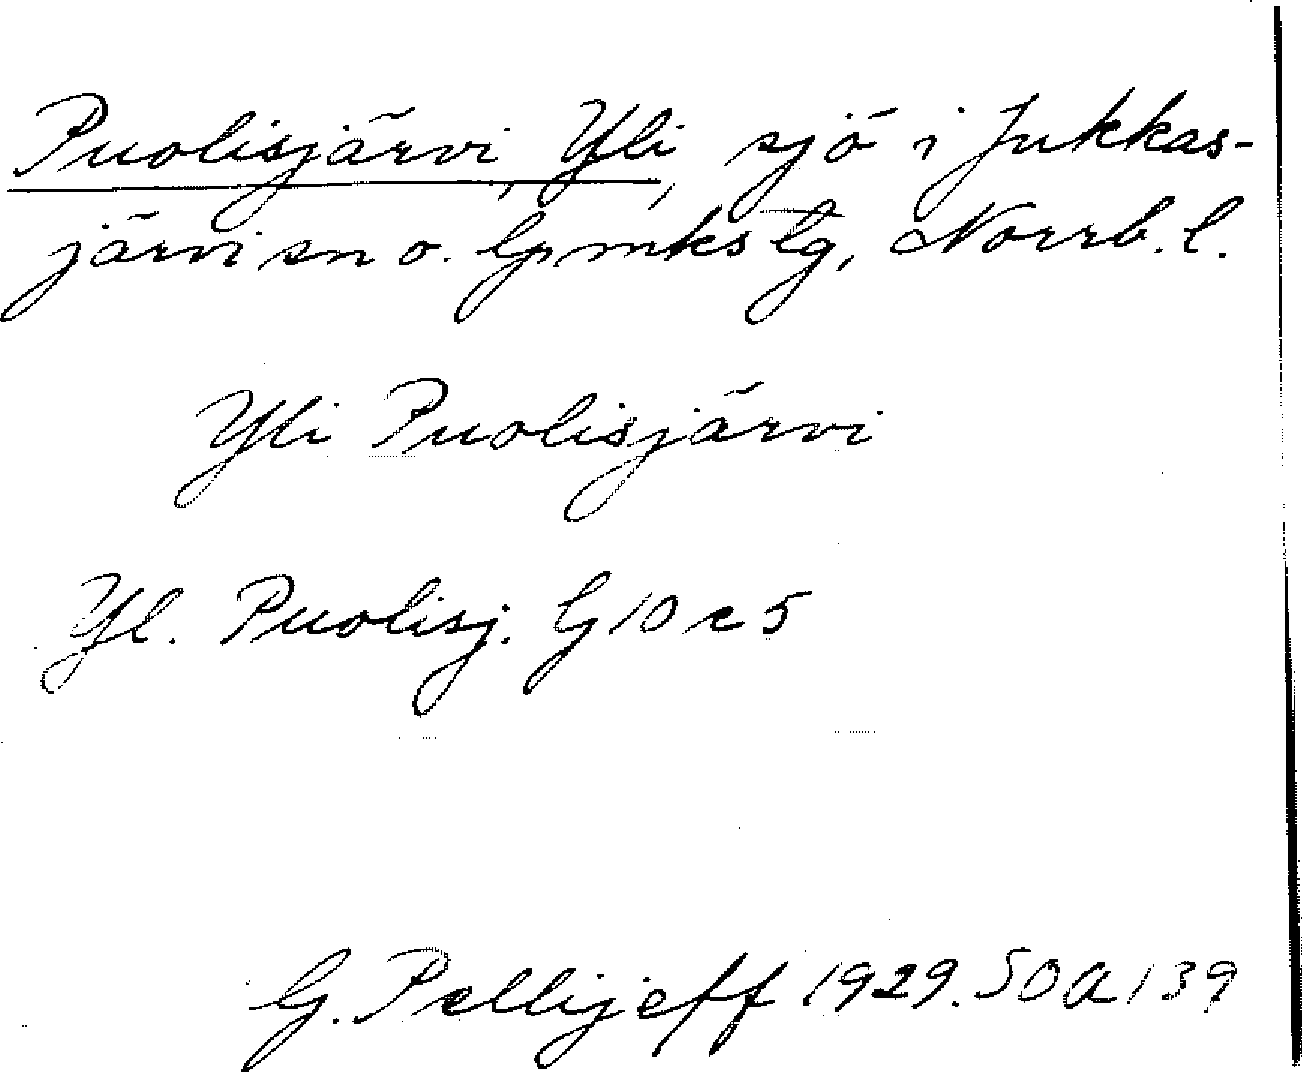 Puolisjärvi, Yli, sjö i Jukkas-
järvi sn o. lpmks tg, Norrb. l.
Yli Puolisjärvi
Yl. Puolisj. G 10 c 5
G. Pellijeff 1929. SOA 139